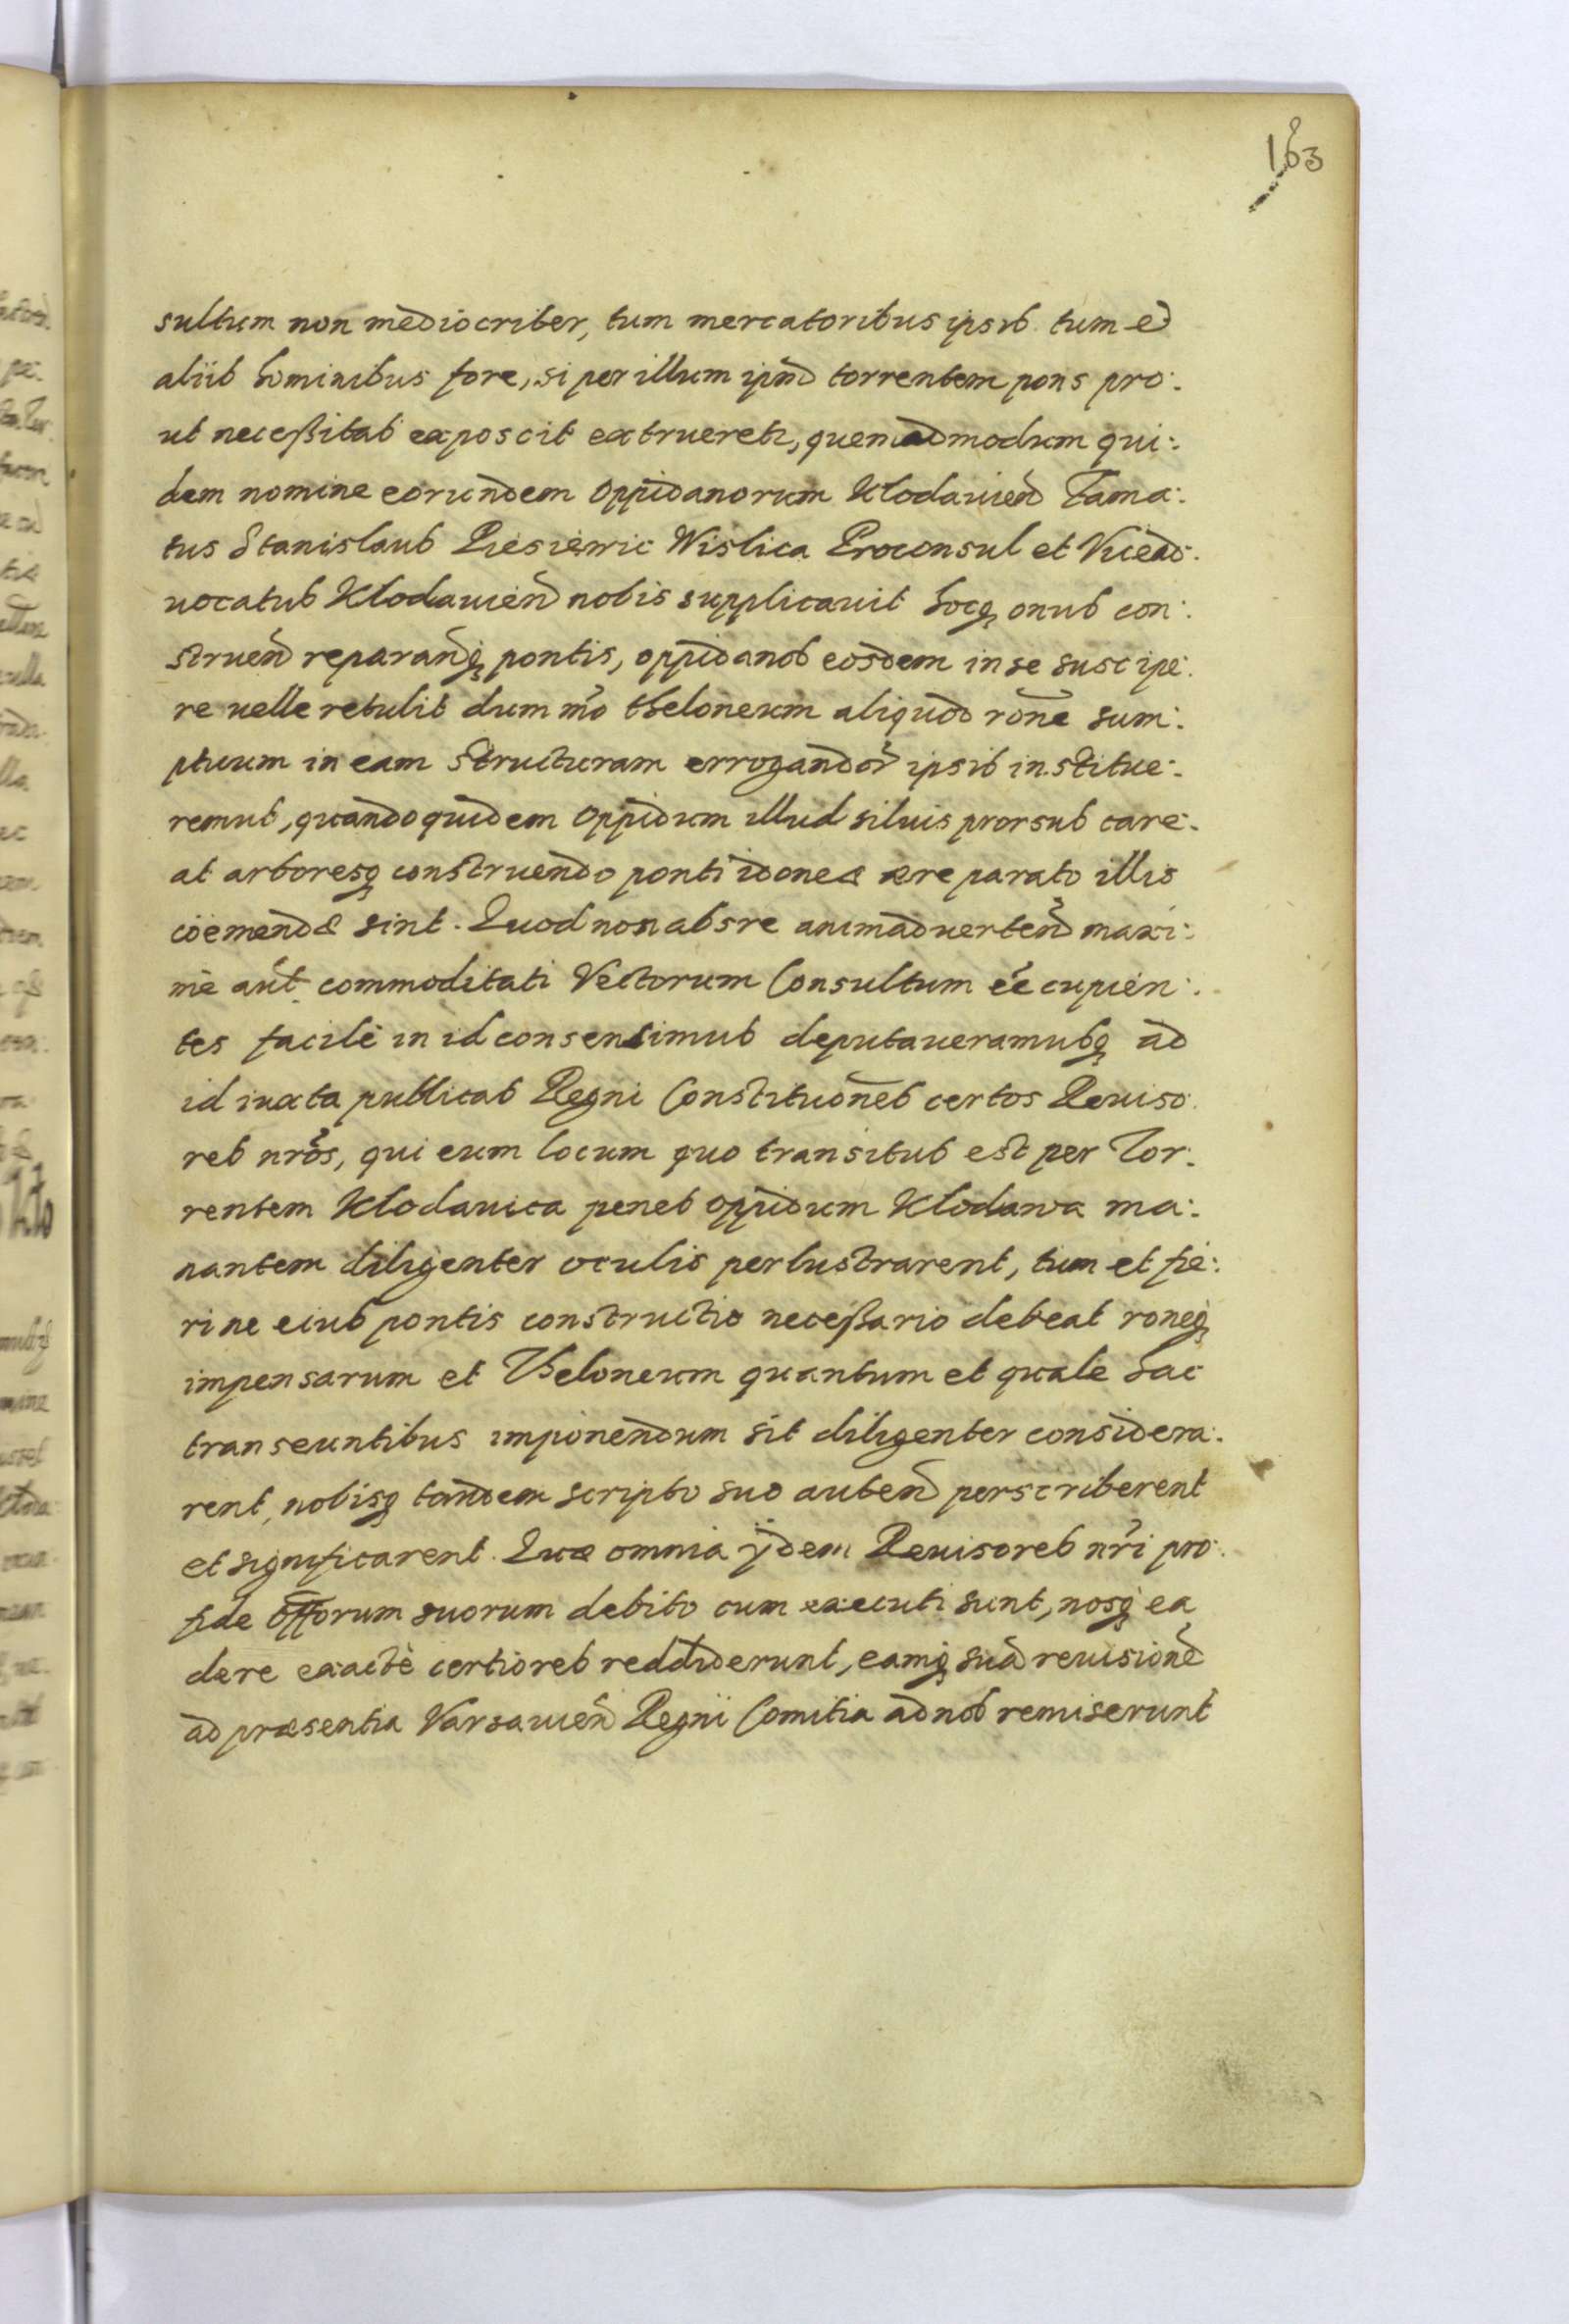 163
sultum non mediocriter, tum mercatoribus ipsis tum ed
aliis hominibus fore, si per illum ipm̄ torrentem pons pro:
ut necessitas exposcit extrueretr, quemadmodum qui:
dam nomine eorundem Oppidanorum Klodavien̄ Fama:
tus Stanislaus Wislica Proconsul et Vicead:
uocatus Klodauien̄ nobis supplicauit hocq; onus con:
struen̄ reparanq; pontis, oppidanos eosdem in se suscipe:
re uelle retulit dum mō theloneum aliquod rōne sum:
ptuum in eam Structuram errogandor̄ ipsis institue:
remus, quandoquidem Oppidum illud siluis prorsus care:
at arboresq; construendo ponti idoneæ ære parato illis
coëmendæ sint. Quod non abs re animaduerten̄ maxi:
mè aūt commoditati Vectorum Consultum eē cupien:
tes facilè in id consensimus deputaueramusq; ad
id iuxta publicas Regni Constitutiōnes certos Reuiso:
res nrōs, qui eum locum quo transitus est per Tor:
rentem Klodauica penes oppidum Klodawa ma:
nantem diligenter oculis perlustrarent, tum et fie:
rine eius pontis constructio necessario debeat roneq;
impensarum et Theloneum quantum et quale hac
transeuntibus imponendum sit diligenter considera:
rent, nobisq; tandem scripto suo auten̄ perscriberent
et significarent. Quæ omnia ijdem Reuisores nrī pro
fide offōrum suorum debito cum executi sunt, nosq; ea
de re exactè certiores reddiderunt, eamq; suā reuisionē
ad præsentia Varsauien̄ Regni Comitia ad nos remiserunt